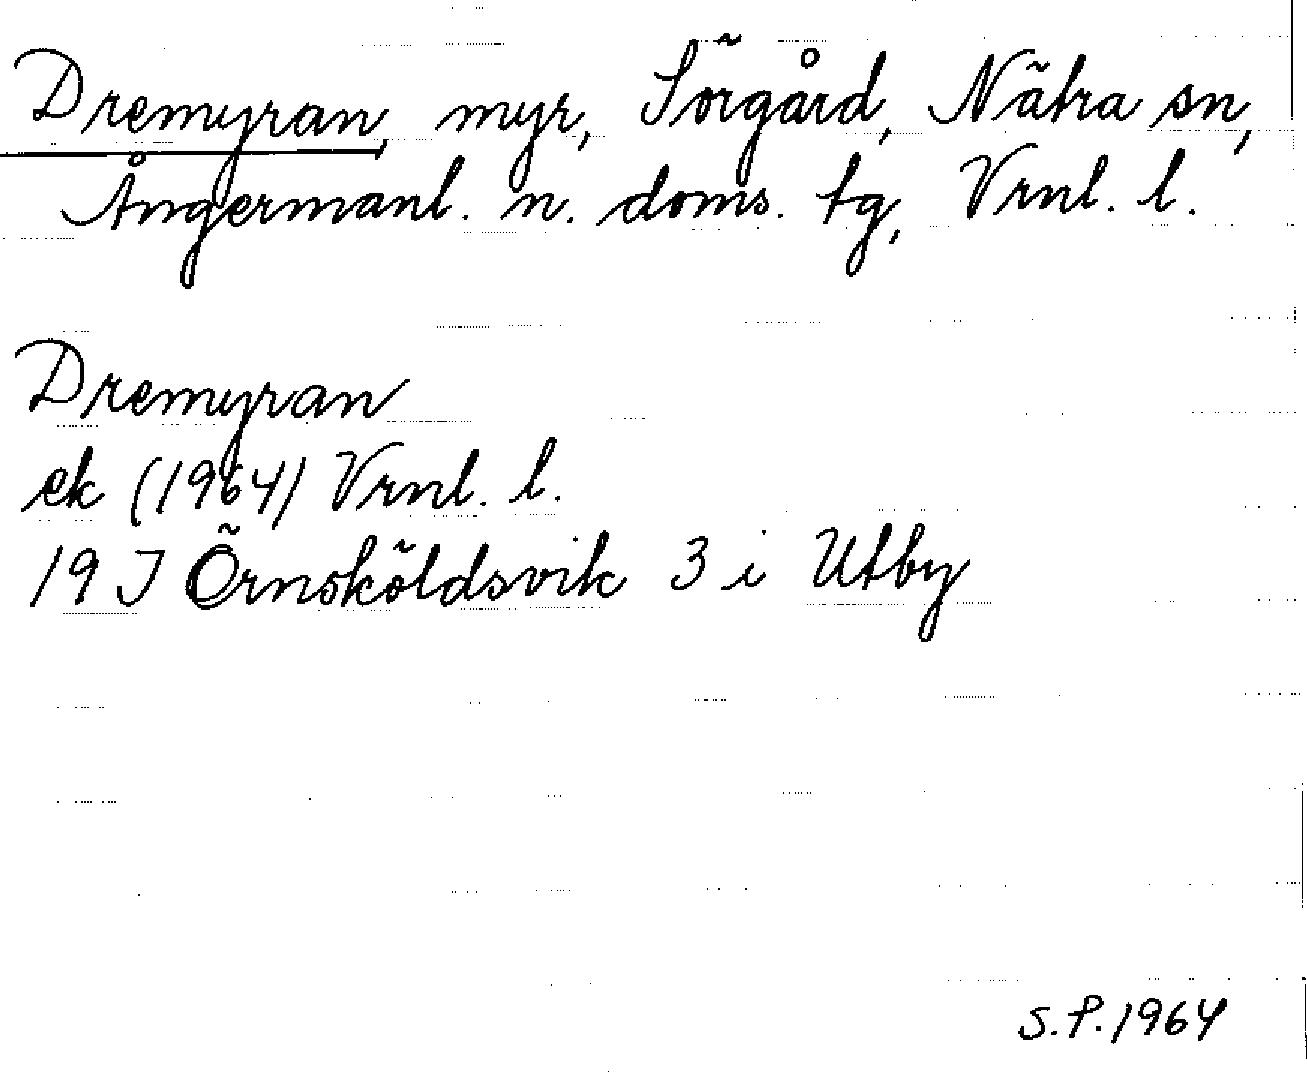 Dremyran, myr, Sörgård, Nätra sn,
Ångermanl. n. doms. tg, Vrnl. l.
Dremyran
ek (1964) Vrnl. l.
19 I Örnsköldsvik 3 i Utby
S.P. 1964